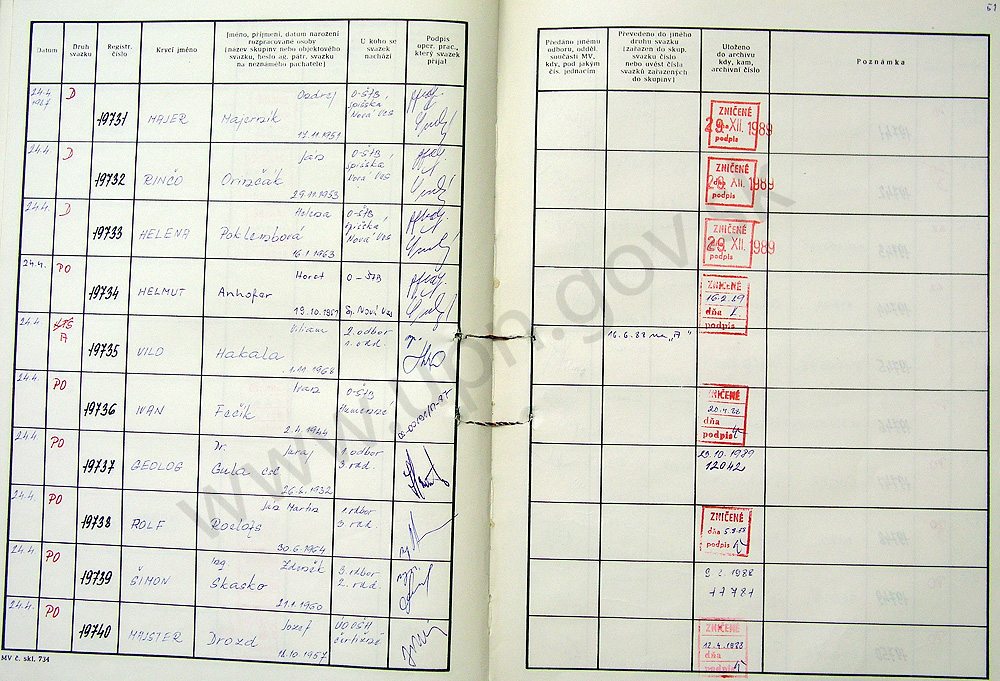 61
Datum
Druh svazku
Registr. číslo
Krycí jméno
Jméno, příjmení, datum narození
rozpracované osoby
(název skupiny nebo objektového
svazku, heslo ag. pátr. svazku
na neznámého pachatele)
U koho se
svazek
nachází
Podpis
oper. prac.,
který svazek
přijal
Předáno jinému
odboru, odděl.
součásti MV,
kdy, pod jakým
čís. jednacím
Převedeno do jiného
druhu svazku
(zařazen do skup.
svazku číslo
nebo uvést čísla
svazků zařazených
do skupiny)
Uloženo
do archivu
kdy, kam,
archivní číslo
Poznámka
24.4. 1987 D 19731 MAJER Ondrej Majerník 17.11.1951 O-ŠTB, Spišská Nová Ves
ZNIČENÉ 29. XII. 1989 podpis
24.4. D 19732 RINČO Ján 29.11.1953 O-ŠTB, Spišská Nová Ves
ZNIČENÉ dňa 29. XII. 1989 podpis
24.4. D 19733 HELENA Helena 16.1.1963 O-ŠTB, Spišská Nová Ves
ZNIČENÉ 29. XII. 1989 podpis
24.4. PO 19734 HELMUT Horst Anhofer 19.10.1961 O-ŠTB Sp. Nová Ves
ZNIČENÉ dňa podpis
24.4. A 19735 VILO Viliam Hakala 1.11.1968 2. odbor
16.6.88 na „A“
24.4. PO 19736 IVAN Ivan Fečik 2.4.1944 O-ŠTB Humenné
ZNIČENÉ 20.4.88 dňa podpis
24.4. PO 19737 GEOLOG Dr. Juraj Gula CSc 26.2.1932 1. odbor 3. odd.
23.10.1989
12042
24.4. PO 19738 ROLF Ján Martin 30.6.1964 1. odbor 3. odd.
ZNIČENÉ dňa podpis
24.4. PO 19739 ŠIMON Ing. Zdeněk Skasko 21.1.1960 3. odbor 2. odd.
9 2. 1988
11781
24.4. PO 19740 MAJSTER Jozef Drozd 11.10.1957
ZNIČENÉ 12.4.1988 dňa podpis
MV č. skl. 734
www.upn.gov.sk